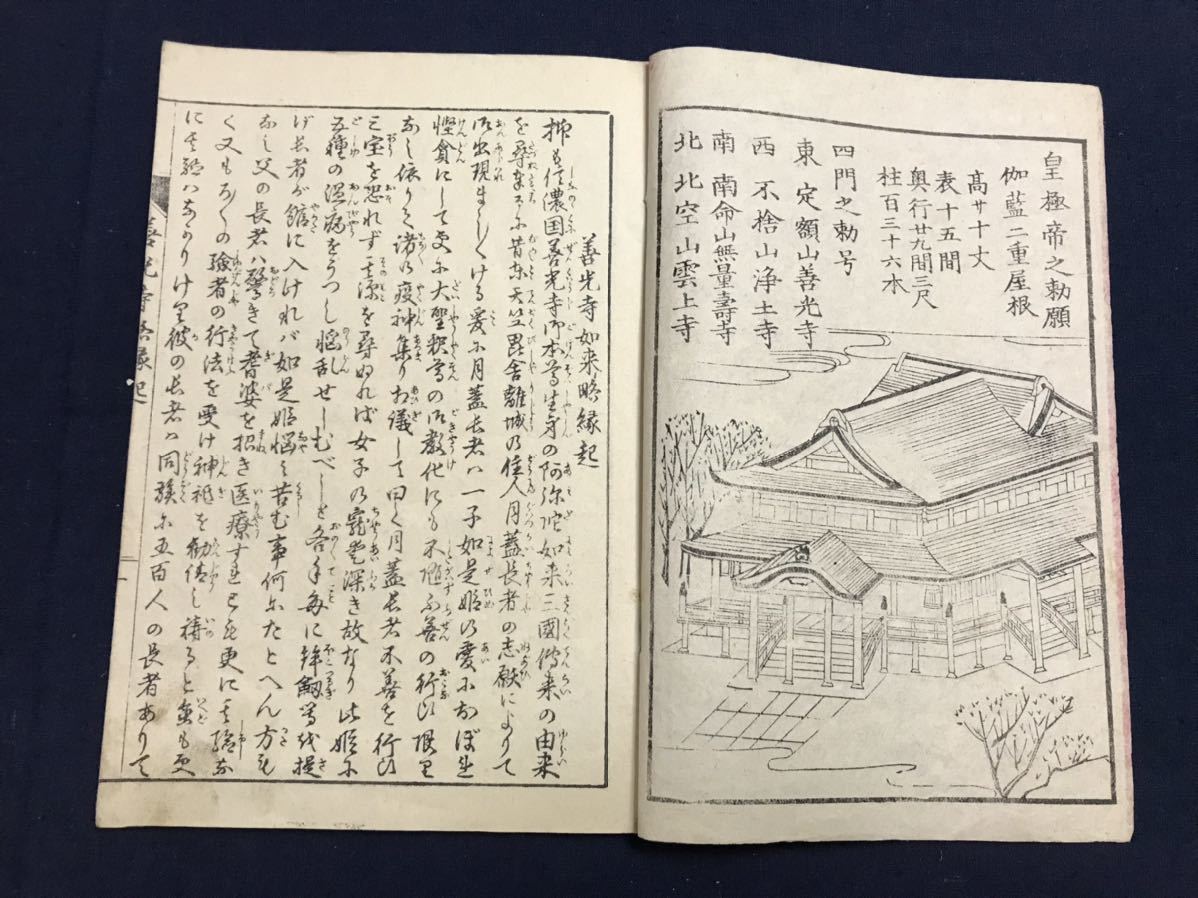 皇極帝之勅願
伽藍二重屋根
高サ十丈
表十五間
奥行廿九間三尺
柱百三十六本
四門之勅号
東 定額山善光寺
西 不捨山浄土寺
南 南命山無量寿寺
北 北空山雲上寺
善光寺如来略縁起
抑も信濃国善光寺御本尊生身の阿弥陀如来三國傳来の由来
を尋奉るに昔東天竺毘舎離城の住人月蓋長者の志願によりて
御出現ましくける爰に月蓋長者ハ一子如是姫の愛におぼれ
慳貪にして更に大聖釈尊の御教化にも不随ふ善の行ひ限り
なし依りて諸の疫神集りあ議して曰く月蓋長者不善を行ひ
三宝を恐れず其源を尋ぬれば女子の寵愛深き故なり此姫に
五種の温病をうつし悩乱せしむべしと各手毎に鉾劔等を提
げ長者が舘に入けれバ如是姫悩み苦む事何にたとへん方も
なし父の長者ハ驚きて耆婆を招き医療すれども更に其驗な
く又もろくの驗者の行法を受け神祇を勧請し祷ると雖も更
に其驗ハなかりけり彼の長者ハ同族に五百人の長者ありて
善光寺畧縁起